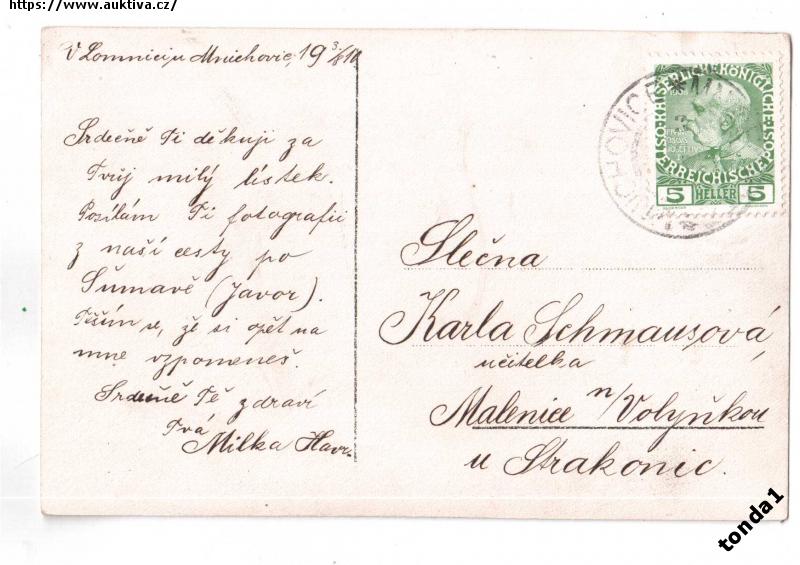 https://www.auktiva.cz/
V Lomnici u Mnichovic, 19 3/8 10
Srdečně Ti děkuji za
Tvůj milý lístek.
Posílám Ti fotografii
z naší cesty po
Šumavě (Javor).
Těším se, že si opět na
mne vzpomeneš.
Srdečně Tě zdraví
Tvá
Milka Havr.
KAISERLICHE KÖNIGLICHE
ÖSTERREICHISCHE POST
5 HELLER 5
Slečna
Karla Schmausová,
učitelka
Malenice n/Volyňkou
u Strakonic.
tonda1